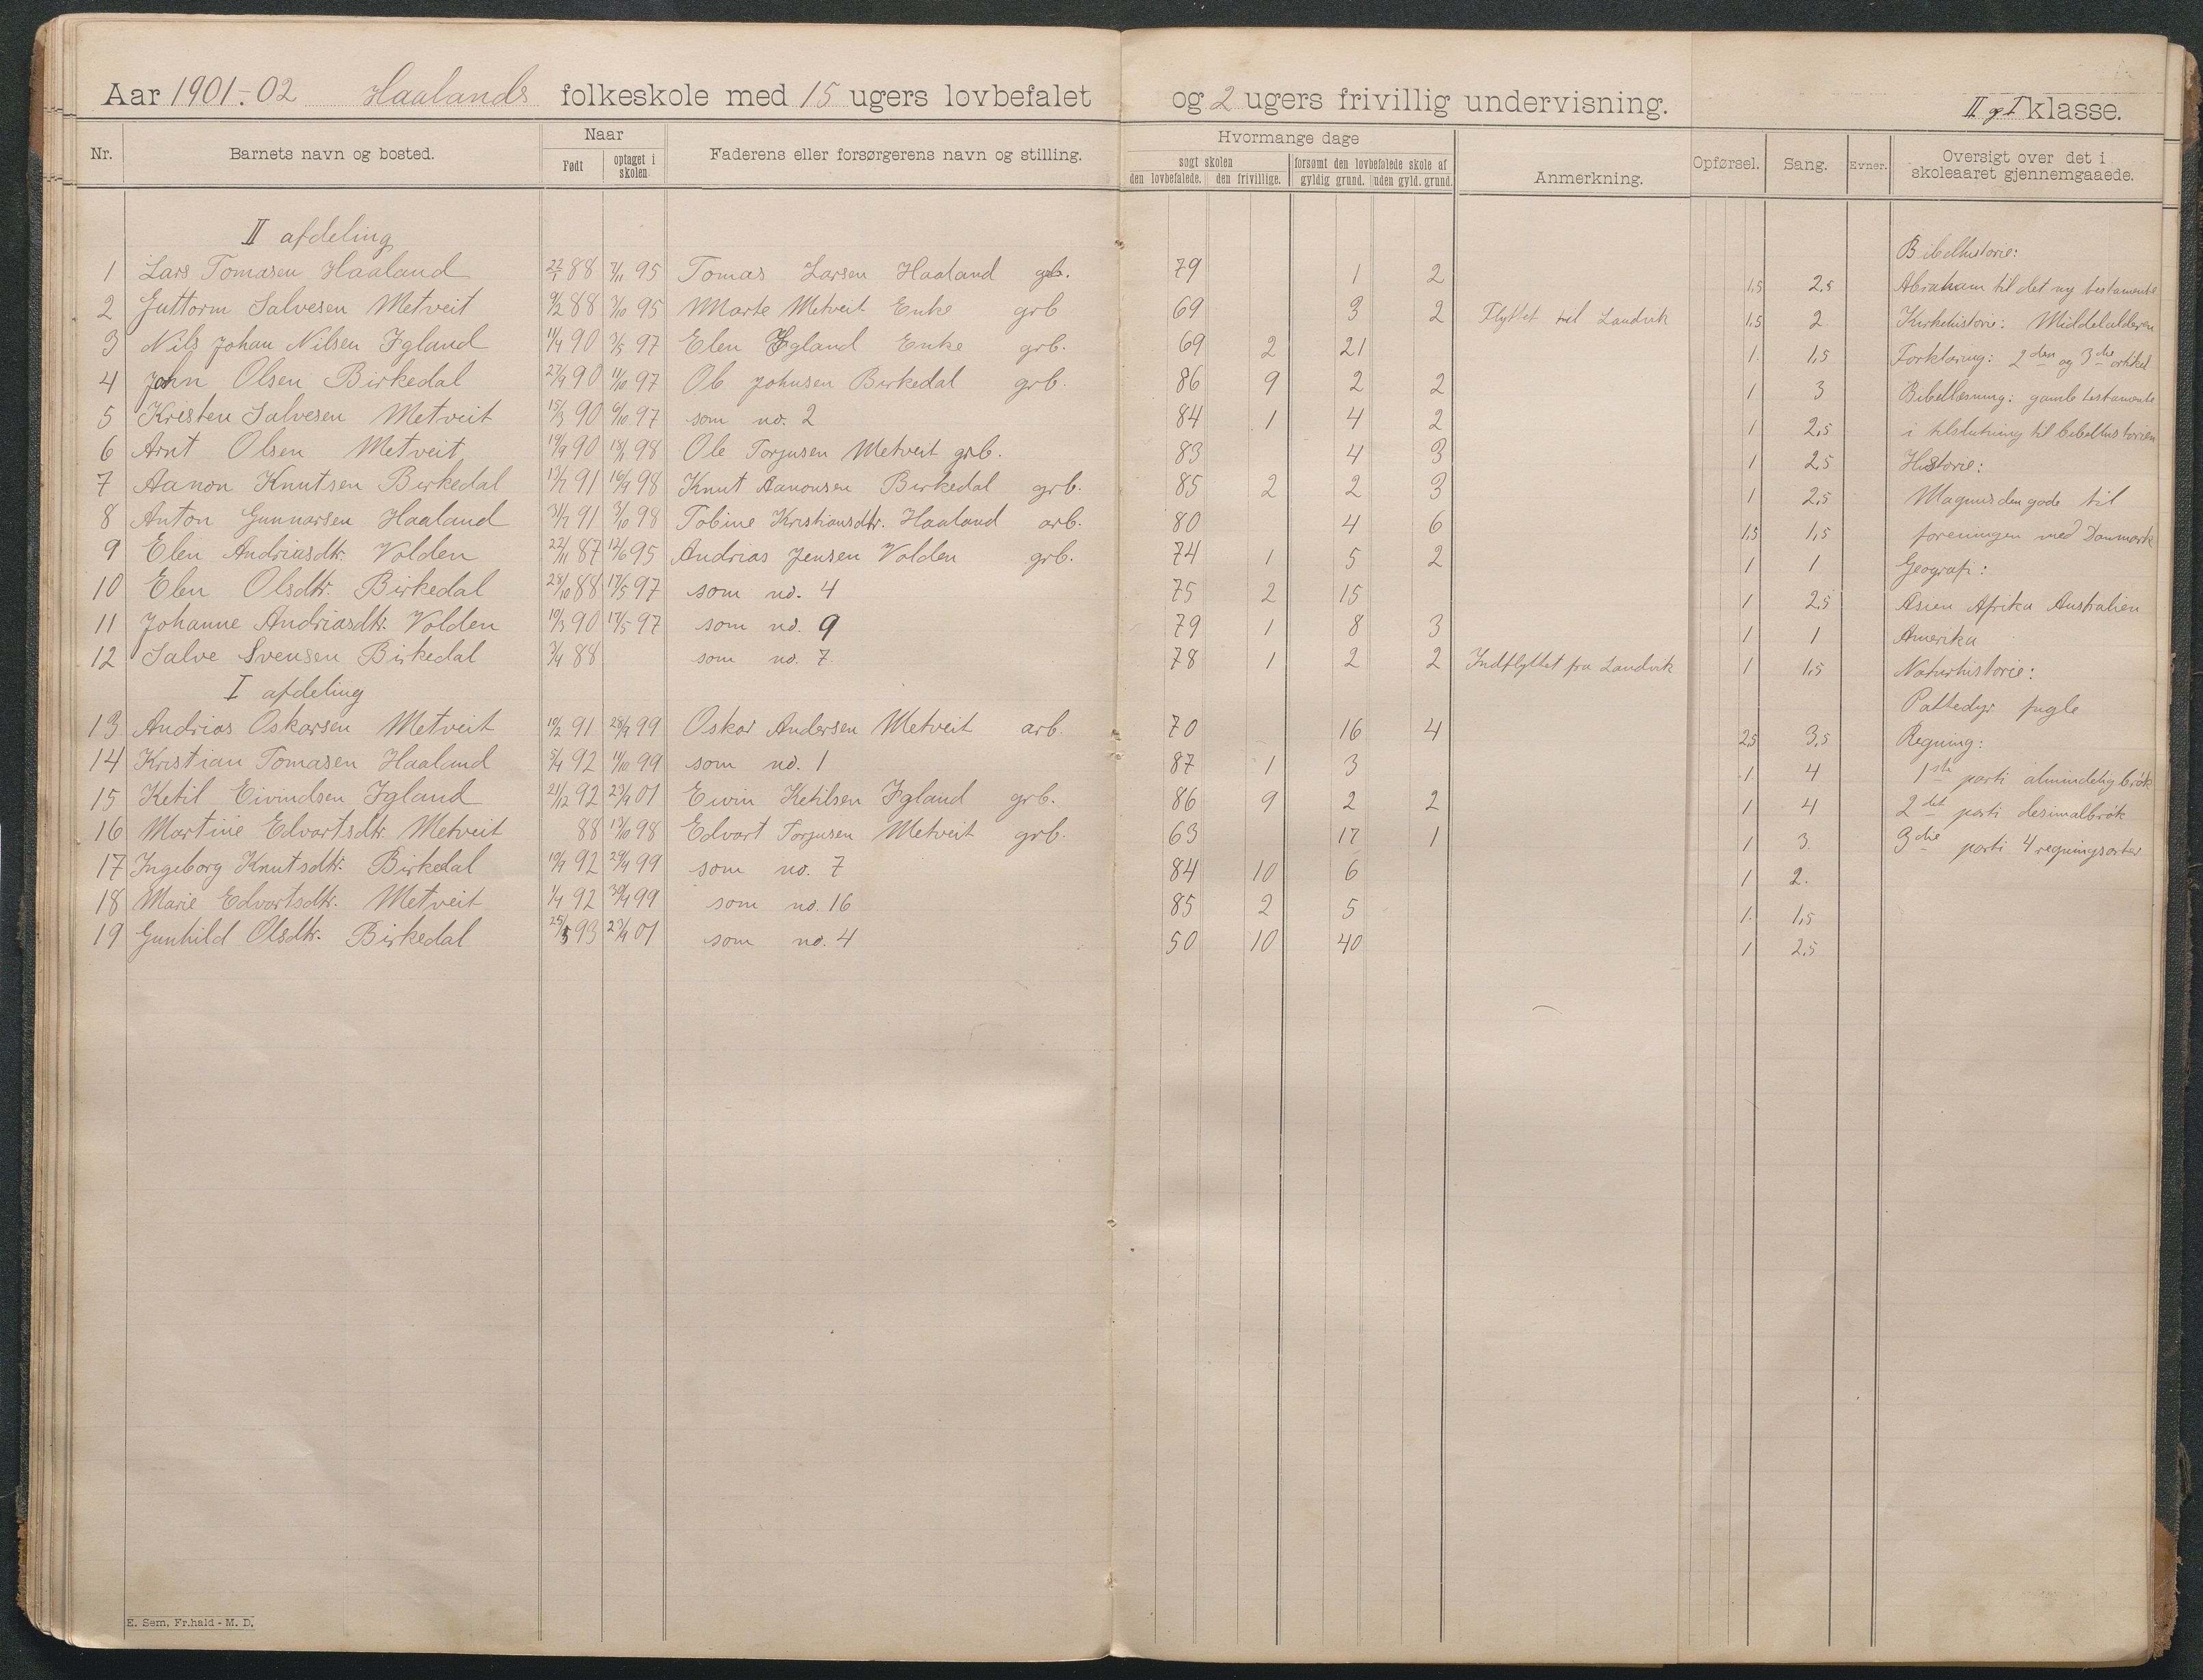 Aar 1901-02 Haalands folkeskole med 15 ugers lovbefalet og 2 ugers frivillig undervisning. II og I klasse.
Nr. Barnets navn og bosted. Naar Født optaget i skolen Faderens eller forsørgerens navn og stilling. Hvormange dage søgt skolen den lovbefalede. den frivillige. forsømt den lovbefalede skole af gyldig grund. uden gyld. grund. Anmerkning. Opførsel. Sang. Evner. Oversigt over det i skoleaaret gjennemgaaede.
II afdeling
1 Lars Tomasen Haaland 88 7/11 95 Tomas Larsen Haaland grb. 79 1 2 1,5 2,5
2 Guttorm Salvesen Metveit 88 3/10 95 Marte Metveit Enke grb 69 3 2 Flyttet til Landvik 1,5 2
3 Nils Johan Nilsen Igland 11/4 90 3/5 97 Elen Igland Enke grb. 69 2 21 1 1,5
4 John Olsen Birkedal 27/9 90 11/10 97 Ole Johnsen Birkedal grb. 86 9 2 2 1 3
5 Kristen Salvesen Metveit 15/3 90 6/10 97 som no. 2 84 1 4 2 1 2,5
6 Arnt Olsen Metveit 19/9 90 98 Ole Torjusen Metveit grb. 83 4 3 1 2,5
7 Aanon Knutsen Birkedal 91 98 Knut Aanonsen Birkedal grb. 85 2 2 3 1 2,5
8 Anton Gunnarsen Haaland 91 3/10 98 Tobine Kristiansdtr. Haaland arb. 80 4 6 1,5 1,5
9 Elen Andriasdtr. Volden 22/11 87 12/6 95 Andrias Jensen Volden grb. 74 1 5 2 1 1
10 Elen Olsdtr. Birkedal 28/10 88 17/5 97 som no. 4 75 2 15 1 2,5
11 Johanne Andriasdtr. Volden 10/3 90 17/5 97 som no. 9 79 1 8 3 1 1
12 Salve Svensen Birkedal 88 som no. 7 78 1 2 2 Indflyttet fra Landvik 1 1,5
I afdeling
13 Andrias Oskarsen Metveit 10/2 91 28/9 99 Oskar Andersen Metveit arb. 70 16 4 2,5 3,5
14 Kristian Tomasen Haaland 5/4 92 11/10 99 som no. 1 87 1 3 1 4
15 Ketil Eivindsen Igland 21/12 92 23/9 01 Eivin Ketilsen Igland grb. 86 9 2 2 1 4
16 Martine Edvartsdtr. Metveit 88 13/10 98 Edvart Torjusen Metveit grb. 63 17 1 1 3
17 Ingeborg Knutsdtr. Birkedal 92 99 som no. 7 84 10 6 1 2
18 Marie Edvartsdtr. Metveit 92 99 som no. 16 85 2 5 1 1,5
19 Gunhild Olsdtr. Birkedal 25/5 93 23/9 01 som no. 4 50 10 40 1 2,5
Bibelhistorie:
Abraham til det ny testamente
Kirkehistorie: Middelalderen
Forklaring: 2den og 3die artikel
Bibellæsning: gamle testamente
i tilslutning til bibelhistorien
Historie:
Magnus den gode til
foreningen med Danmark
Geografi:
Asien Afrika Australien
Amerika
Naturhistorie:
Pattedyr fugle
Regning:
1ste parti almindelig brøk
2det parti desimalbrøk
3die parti 4 regningsarter
E. Sem, Fr.hald - M. D.